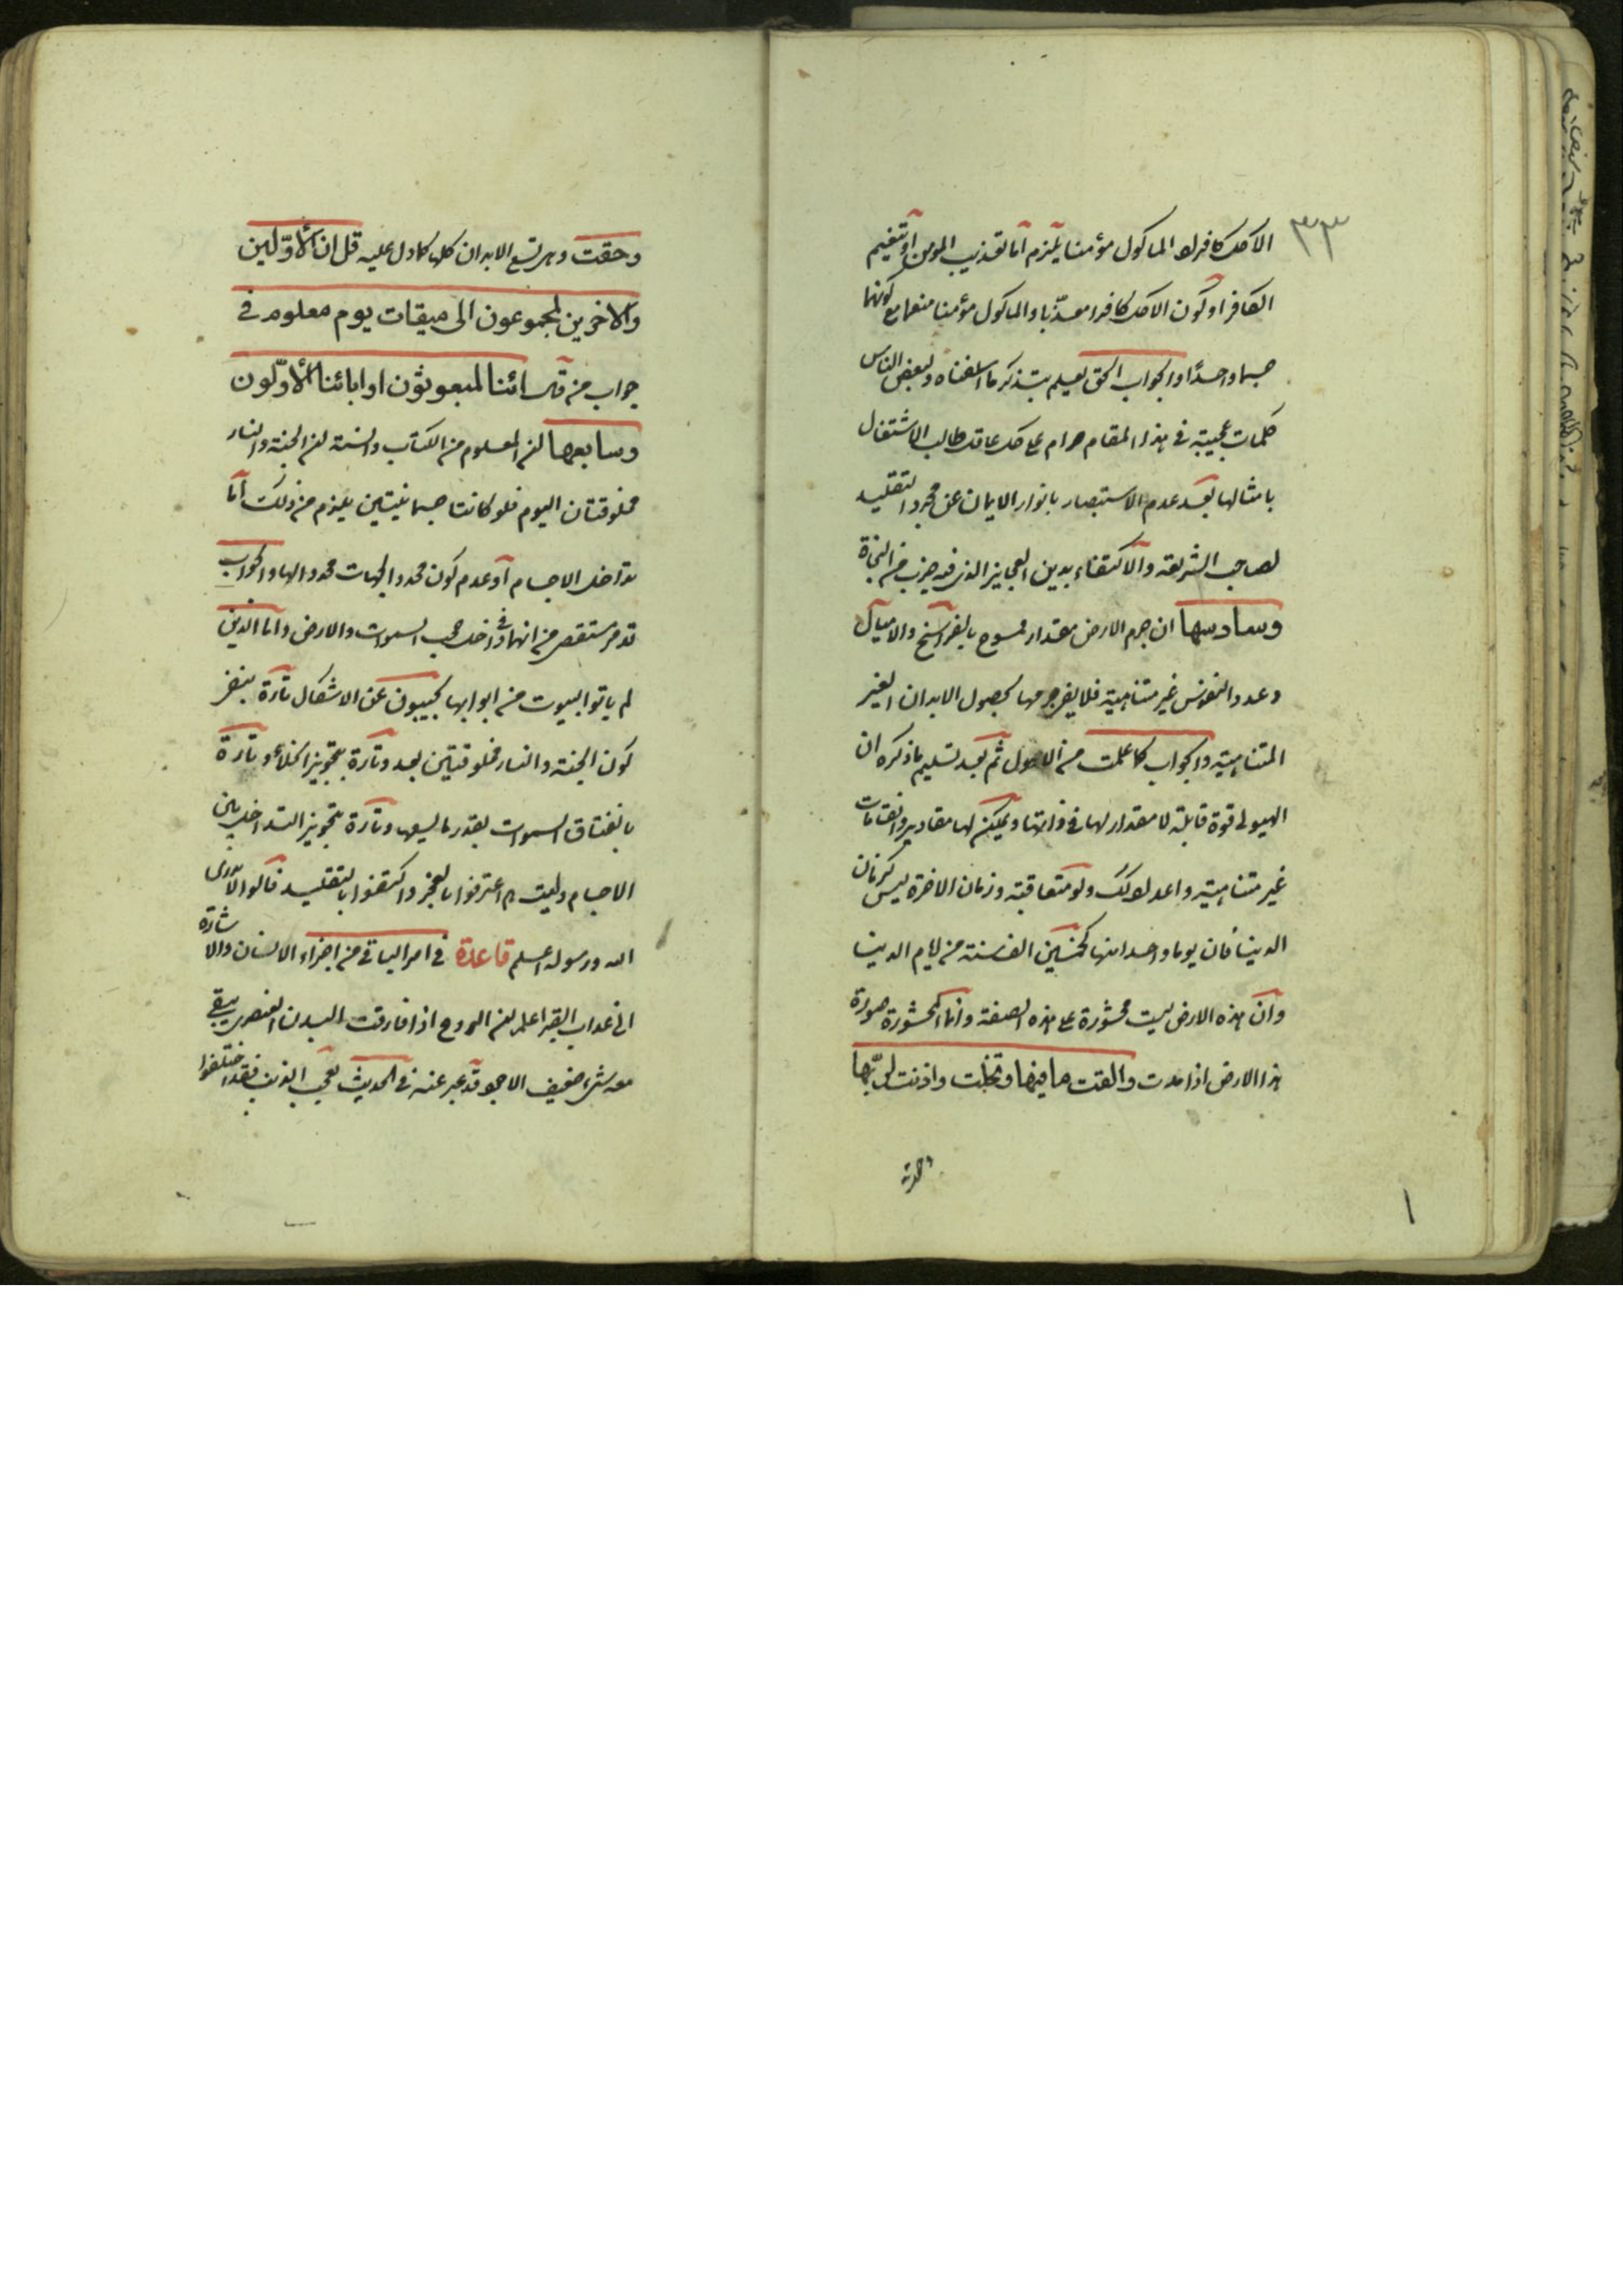 ٣٣
الآكل كافرا والماكول مؤمنا يلزم اما تعذيب المومن او تنعيم
الكافر او كون الاكل كافرا معذّبا والماكول مؤمنا منعما مع كونهما
جسما واحدًا والجواب الحق يعلم بتذكر ما اسلفناه ولبعض الناس
كلمات عجيبة فى هذا المقام حرام على كل عاقل طالب الاشتغال
بامثالها بعد عدم الاستبصار بانوار الايمان عن مجرد التقليد
لصاحب الشريعة والاكتفاء بدين العجايز الذى فيه ضرب من النجاة
وسادسها ان جرم الارض مقدار ممسوح بالفراسخ والاميال
وعدد النفوس غير متناهية فلا يفى جرمها بحصول الابدان الغير
المتناهية والجواب كما علمت من الاصول ثم بعد تسليم ما ذكره ان
الهيولى قوة قابلة لا مقدار لها فى ذاتها ويمكن لها مقادير وانقسامات
غير متناهية واعداد كذلك ولو متعاقبة وزمان الاخرة ليس كزمان
الدينا فان يوما واحدا منها كخمسين الف سنة من ايام الدينا
وان هذه الارض ليست محشورة على هذه الصفة وانما المحشورة صورة
هذا الارض اذا مدت والقت ما فيها وتخلت واذنت لربّها
وحقت وهى تسع الابدان كلها كما دل عليه قل ان الأوّلين
والاخرين لمجموعون الى ميقات يوم معلوم فى
جواب من قال ائنا لمبعوثون او ابائنا الأوّلون
وسابعها ان المعلوم من الكتاب والسنة ان الجنة والنار
مخلوقتان اليوم فلو كانتا جسمانيتين يلزم من ذلك اما
تداخل الاجسام او عدم كون محدد الجهات محددا لها والجواب
قد مر مستقصى من انهما فى داخل حجب السموات والارض واما الذين
لم ياتوا البيوت من ابوابها يجيبون عن الاشكال تارة بنفى
كون الجنة والنار مخلوقتين بعد وتارة بتجويز الخلاء وتارة
بانفتاق السموات بقدر ما يسعها وتارة بتجويز التداخل بين
الاجسام وليت هم اعترفوا بالعجز واكتفوا بالتقليد فقالوا لا ندرى
الله ورسوله اعلم قاعدة فى امر الباقى من اجزاء الانسان والاشارة
الى عذاب القبر اعلم ان الروح اذا فارقت البدن العنصرى يبقى
معه شىء ضعيف الوجود قد عبر عنه فى الحديث بعجب الذنب فقد اختلفوا